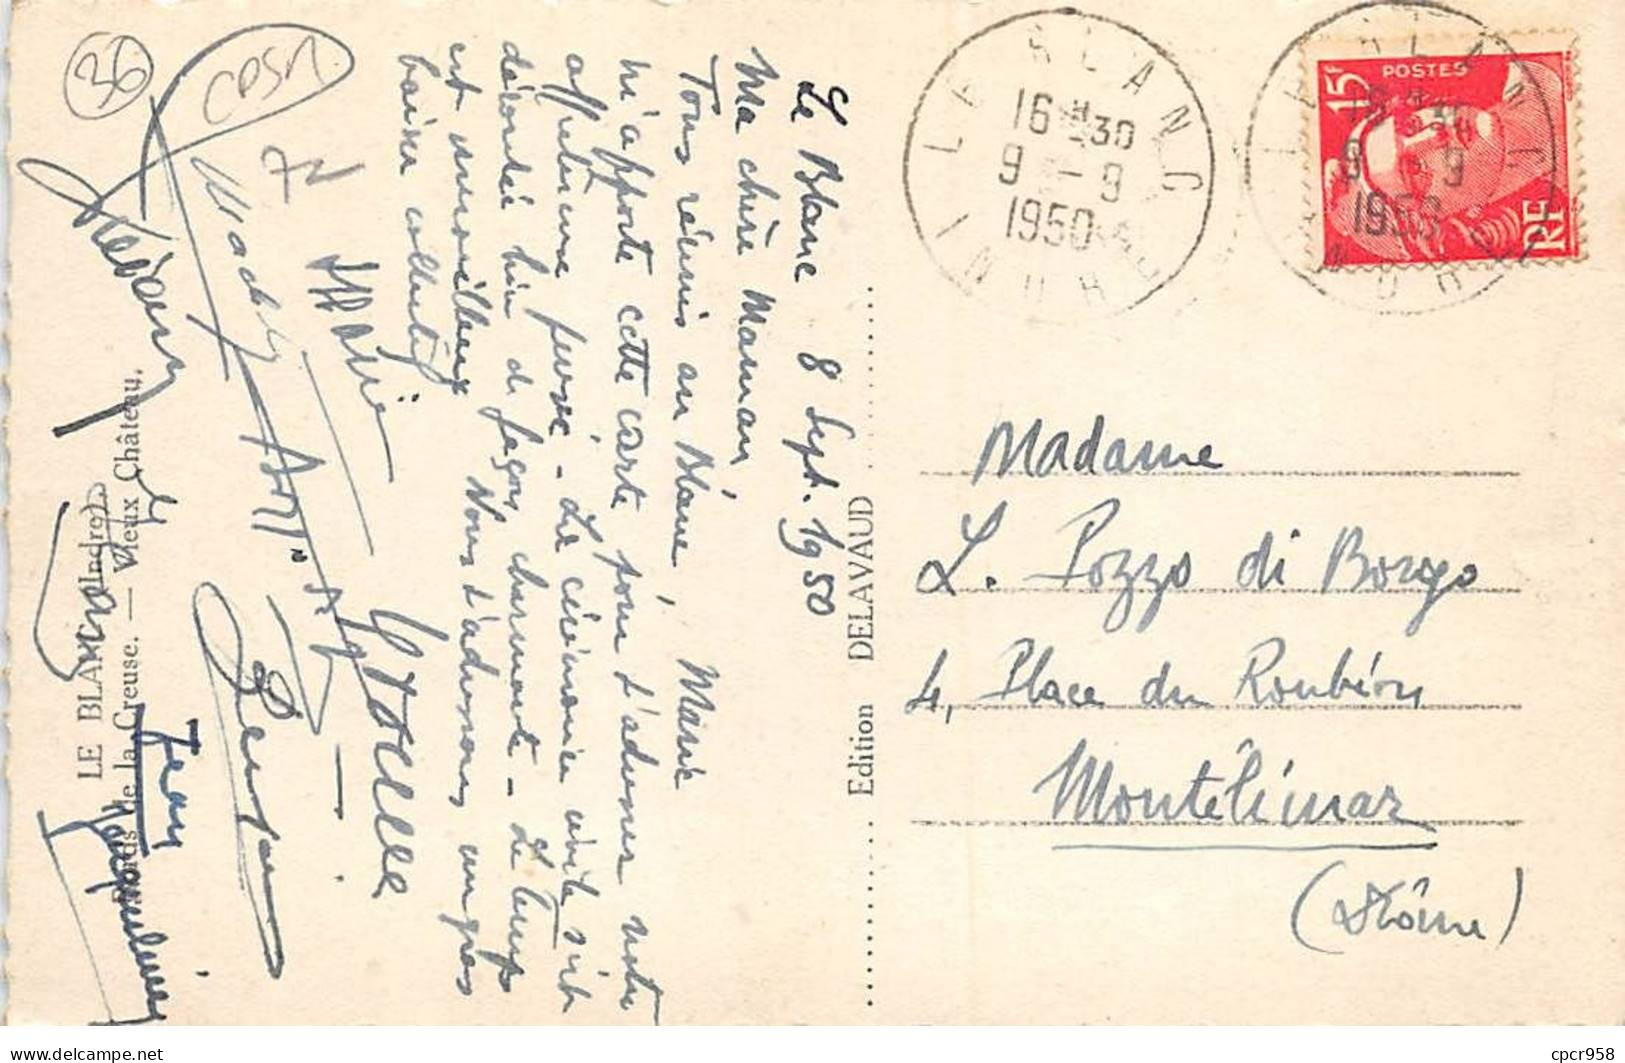 Le Blanc 8 Sept. 1950
Ma chère Maman,
Tous réunis au Blanc, Marie
m'apporte cette carte pour t'adresser notre
affectueuse pensée - La cérémonie civile s'est
déroulée hier de façon charmante - Le temps
est merveilleux Nous t'adressons un gros
baiser collectif
Marie
Yvonne
Jean
Jacqueline
36
LE BLANC (Indre).
Bords de la Creuse. — Vieux Château.
Edition DELAVAUD
LE BLANC
16 H 30
9 - 9
1950
INDRE
LE BLANC
16 H 30
9 - 9
1950
INDRE
15F
POSTES
RF
Madame
L. Pozzo di Borgo
4, Place du Roubion
Montélimar
(Drôme)
cpcr958